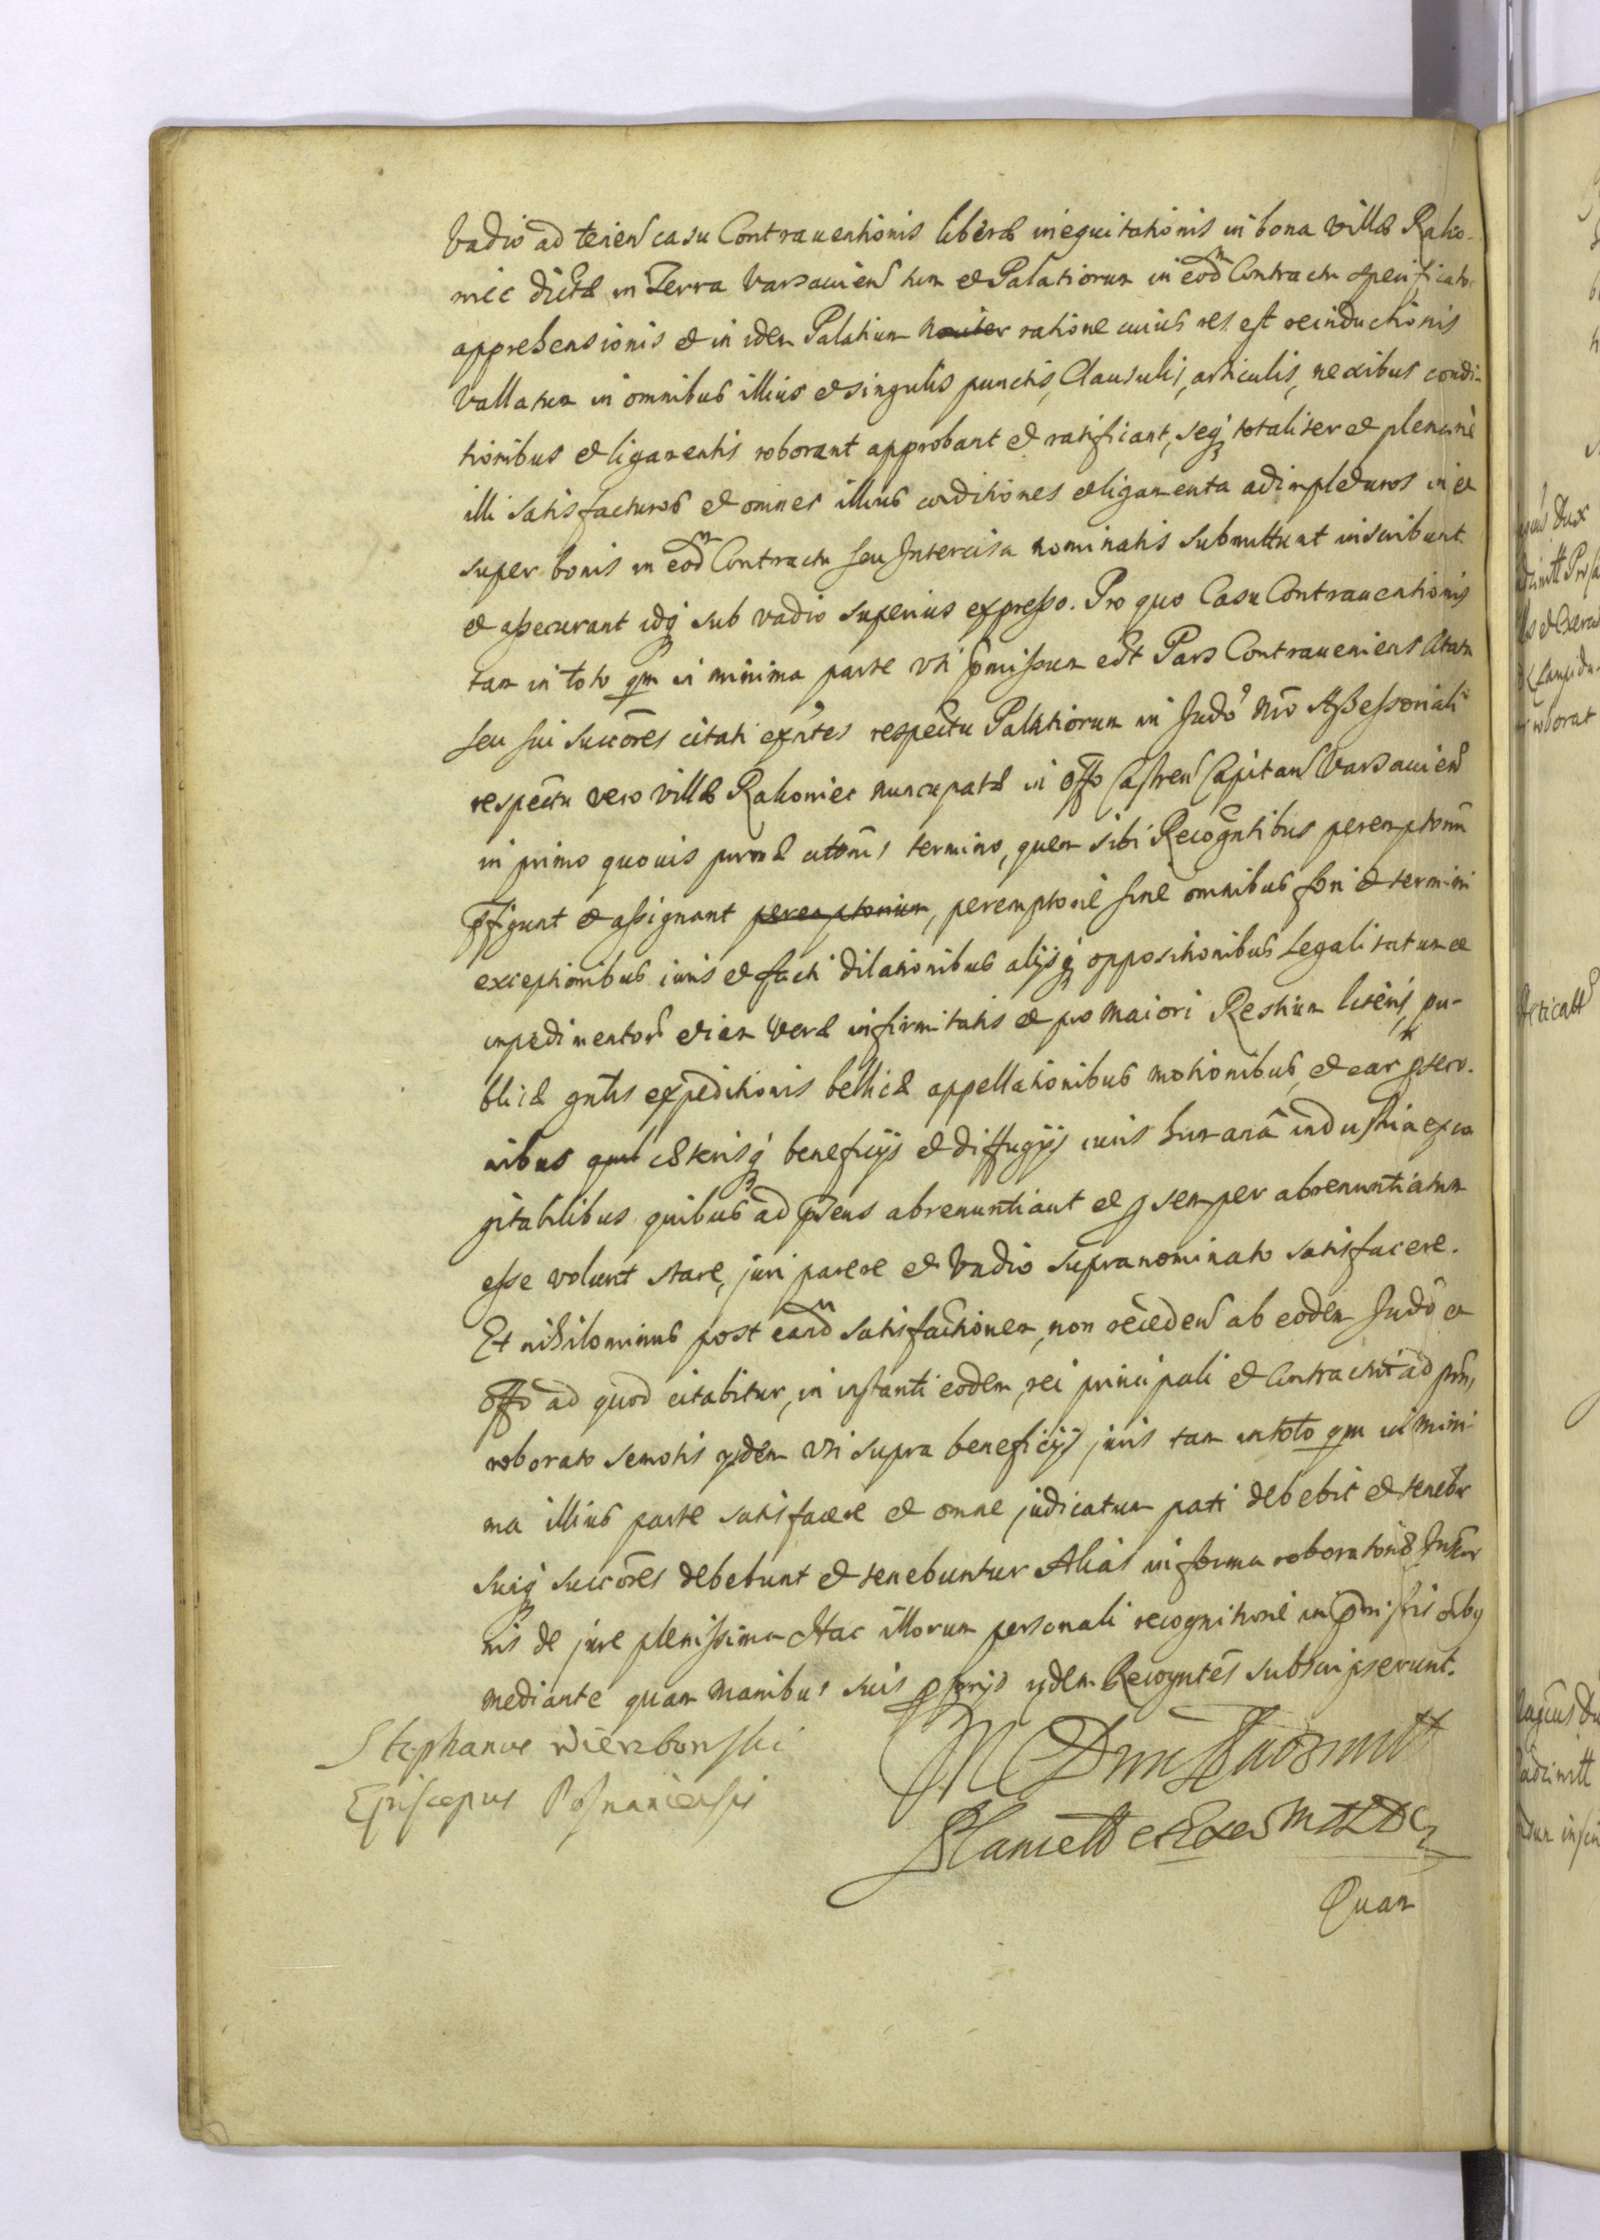 Vadio ad tenen casu Contrauentionis liberæ inequitationis in bona villæ Rako-
niec dictæ in Terra Varsauien tum et Palatiorum in eodm Contractu specificato
apprehensionis et in idem Palatium ratione cuius res est reinductionis
Vallatum in omnibus illius et singulis punctis, Clausulis, articulis, nexibus condi-
tionibus et ligamentis roborant approbant et ratificant, seq3 totaliter et plenarie
illi satisfacturos et omnes illius conditiones et ligamenta adimpleturos in et
super bonis in eodm Contractu seu Intercisa nominatis submittunt inscribunt
et assecurant idq3 sub vadio superius expresso. Pro quo Casu Contrauentionis
tam in toto qm in minima parte vti pmissum est Pars Contraueniens citata
seu sui succōres citati exntes respectu Palatiorum in Judo Assessoriali
respectu vero villæ Rakoniec nuncupatæ in offo Castren Capitan Varsauien
in primo quouis termino, quem sibi Recogntibus
pfigunt et assignant peremptorium, peremptorie sine omnibus fori et termini
exceptionibus iuris et facti dilationibus alijsq3 oppositionibus Legalitatum et
impedimentor etiam veræ infirmitatis et pro maiori Restium literis, pu-
blicæ gnlis expeditionis bellicæ appellationibus motionibus, et ear psecu-
nibus cæterisq3 beneficijs et diffugijs iuris humanâ industria exco
gitabilibus quibus ad psens abrenuntiant et p semper abrenuntiatum
esse volunt stare, juri parere et Vadio supranominato satisfacere.
Et nihilominus post eandm satisfactionem, non receden ab eodem Judo et
offo ad quod citabitur, in instanti eodem, rei principali et Contractui ad pns,
roborato semotis ijsdem vti supra beneficijs juris tam in toto qm in mini-
ma illius parte satisfacere et omne judicatum pati debebit et tenebr
suiq3 succōres debebunt et tenebuntur Aliàs in forma roborationis
nis de jure plenissima Hac illorum personali recognitione in pmissis
mediante quam manibus suis pprijs ijdem Recogntes subscripserunt.
Stephanus Wierzbowski
Episcopus Posnaniensis
Quam